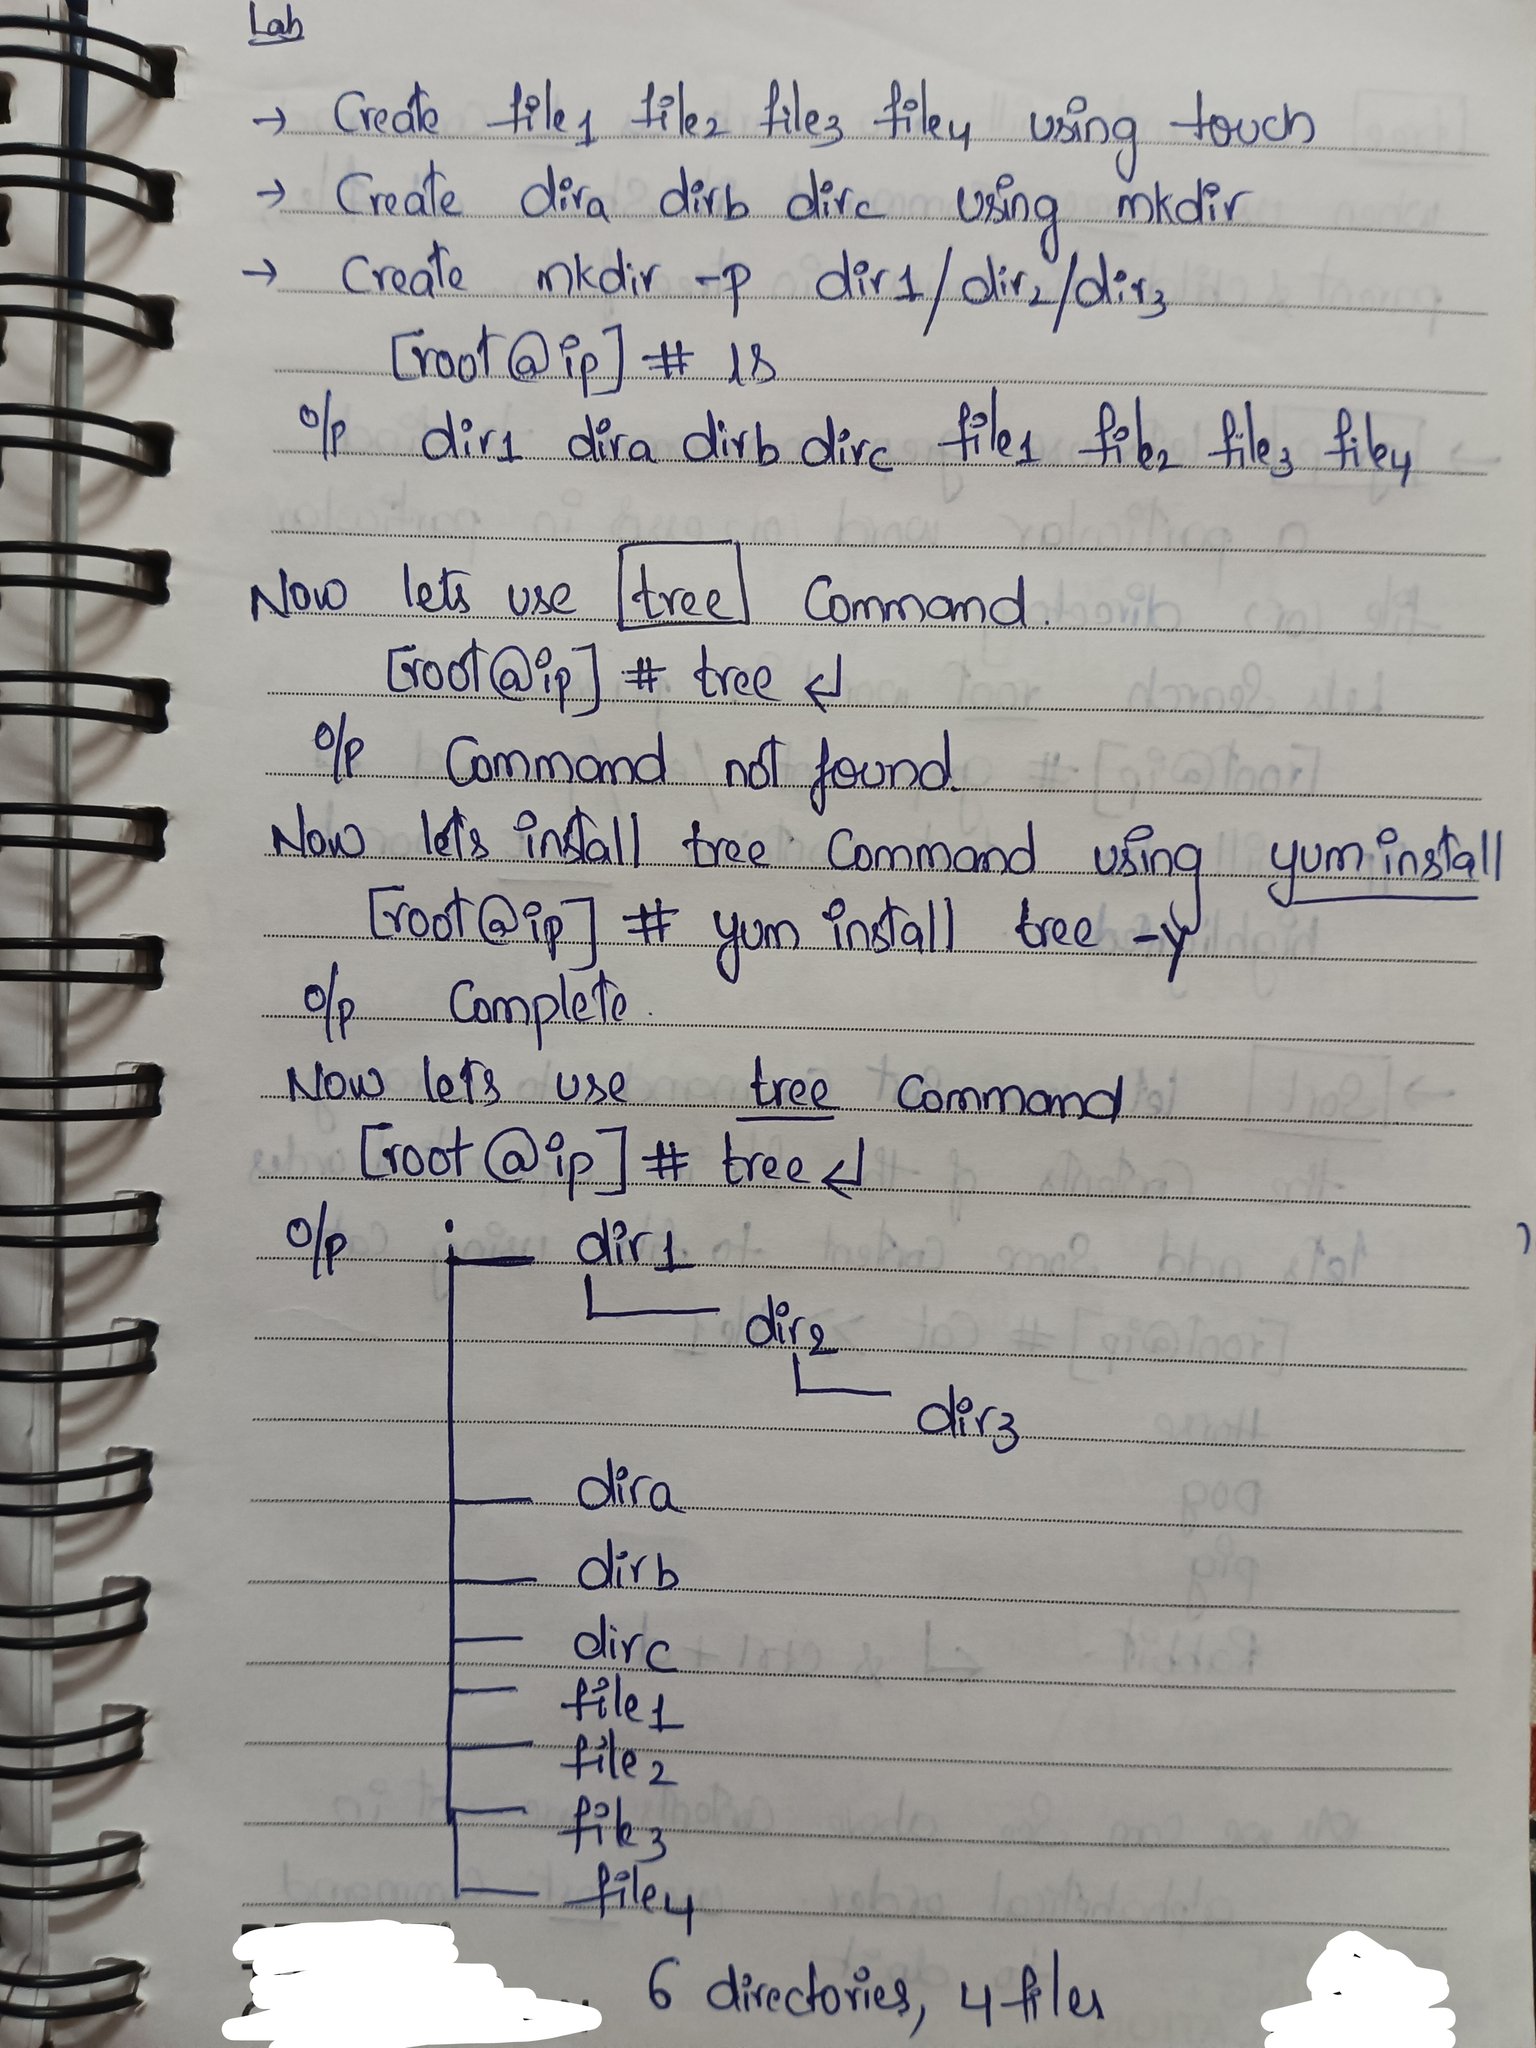 Lab
→ Create file1 file2 file3 file4 using touch
→ Create dira dirb dirc using mkdir
→ Create mkdir -p dir1/dir2/dir3
[root@ip] # ls
o/p dir1 dira dirb dirc file1 file2 file3 file4
Now lets use tree Command.
[root@ip] # tree ↵
o/p Command not found.
Now lets install tree Command using yum install
[root@ip] # yum install tree -y
o/p Complete.
Now lets use tree Command
[root@ip] # tree ↵
o/p . dir1
dir2
dir3
dira
dirb
dirc
file1
file2
file3
file4
6 directories, 4 files